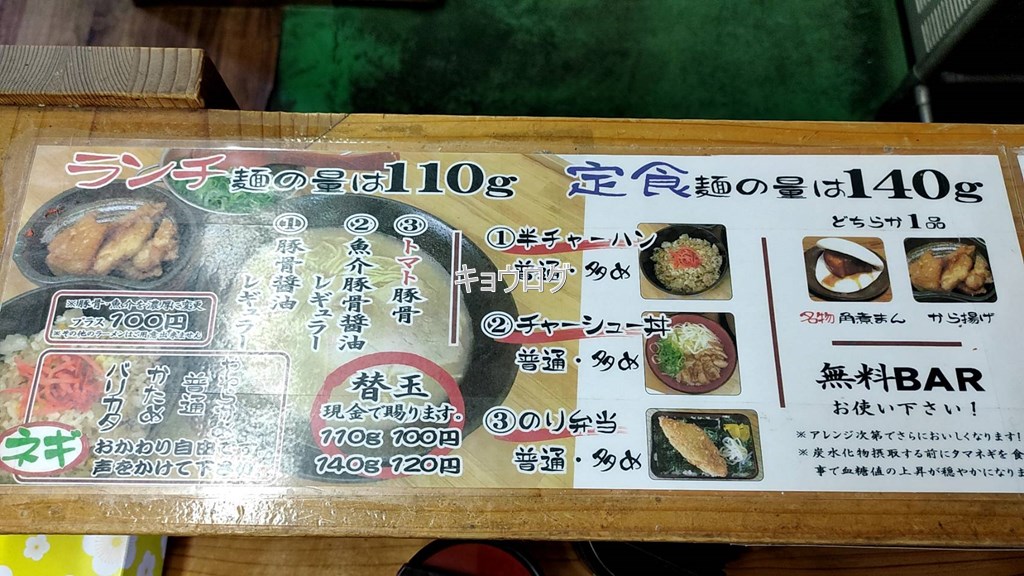 ランチ麺の量は110g
①豚骨醤油
レギュラー
②魚介豚骨醤油
レギュラー
③トマト豚骨
※豚骨・魚介を濃厚に変更
プラス100円
普通
かため
バリカタ
ネギ
おかわり自由です
声をかけて下さい
替玉
現金で賜ります。
110g 100円
140g 120円
定食麺の量は140g
①半チャーハン
普通・多め
②チャーシュー丼
普通・多め
③のり弁当
普通・多め
どちらか1品
名物角煮まん
から揚げ
無料BAR
お使い下さい！
※アレンジ次第でさらにおいしくなります!
※炭水化物摂取する前にタマネギを食
事で血糖値の上昇が穏やかになりま
キョウログ